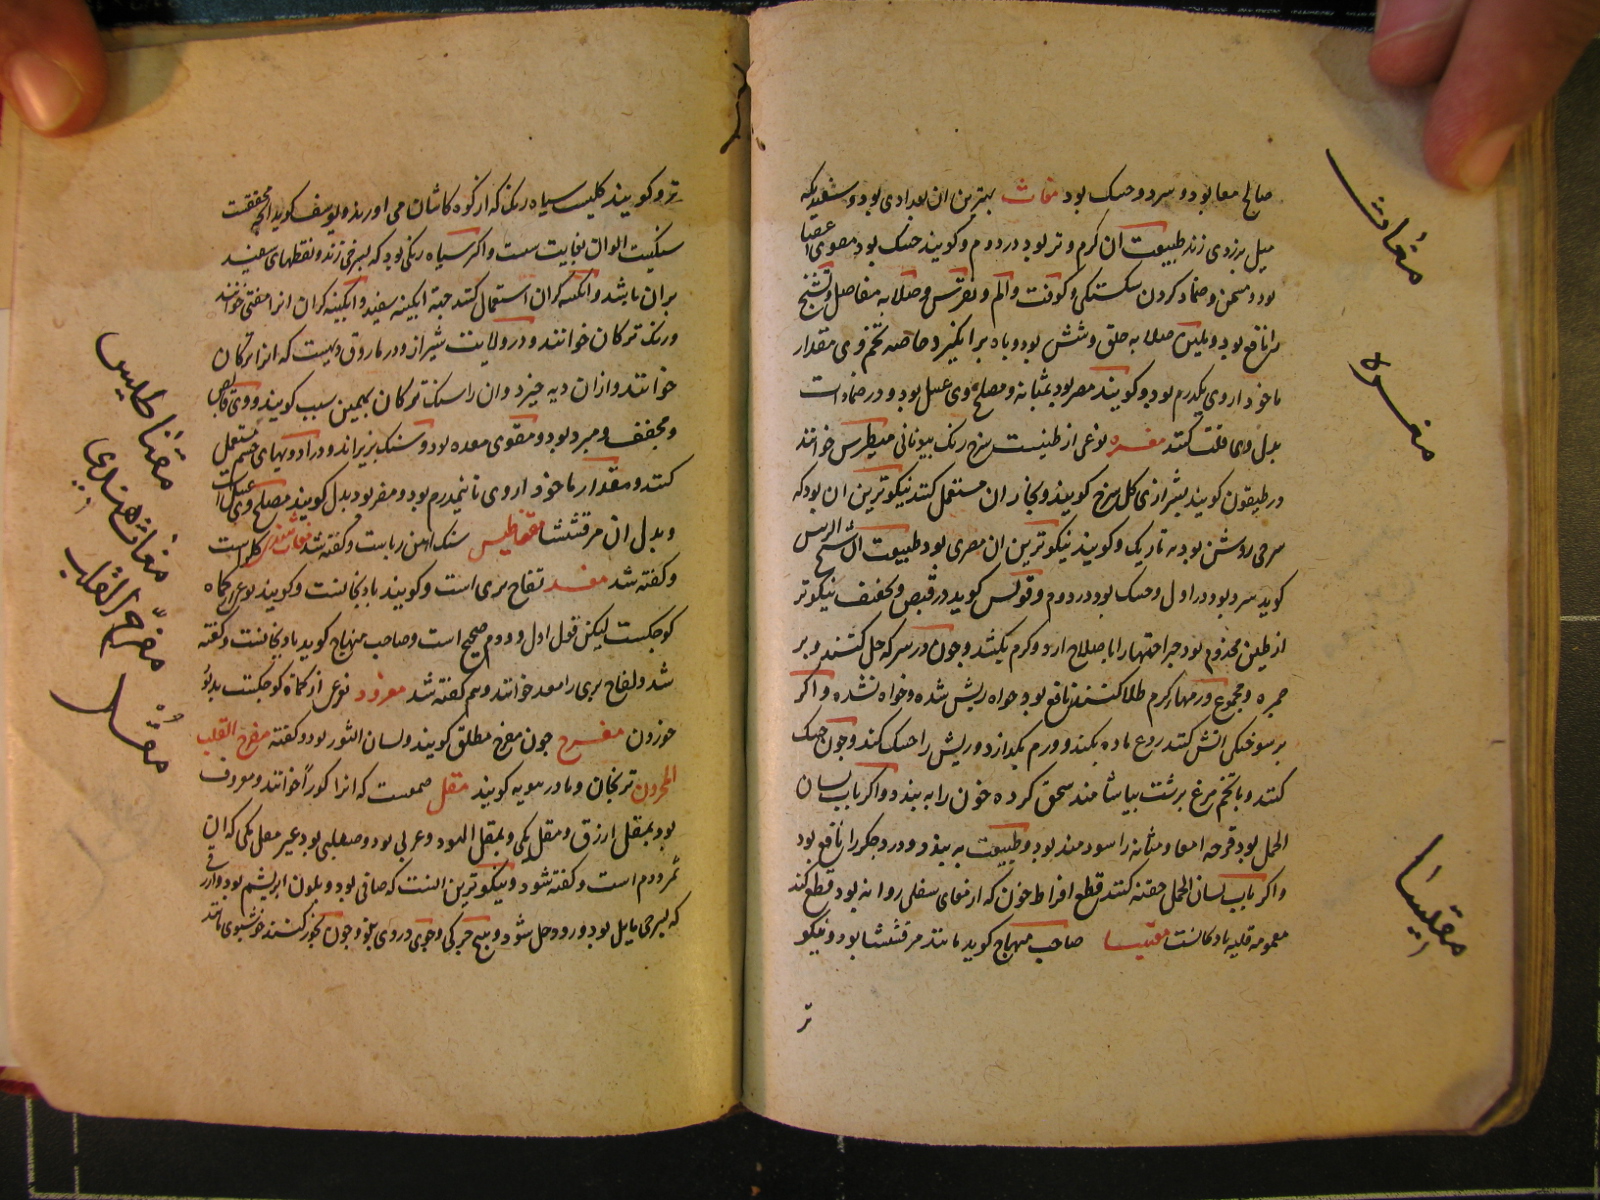 صالح معا بود و سرد و خشک بود مغاث بهترین ان بغدادی بود و سفید که
میل بزردی زند طبیعت ان کرم و تر بود در دوم و کویند خشک بود مقوی اعضا
بود و مسمن و ضماد کردن شکستکی و کوفت و الم و نقرس و صلابه مفاصل و تشنج
را نافع بود و تلیین صلابه حلق و شش بود و باه برانکیزد خاصه تخم وی مقدار
ماخوذ از وی یکدرم بود و کویند مضر بود بمثانه و مصلح وی عسل بود و در ضماد است
بدل وی کنند مغره نوعی از طینست سرخ رنک بیونانی میطرس خوانند
و کویند بشیرازی کل سرخ کویند و نجاران مستعمل کنند نیکوترین ان بود که
سرخی روشن بود نه تاریک و کویند نیکوترین ان مصری بود طبیعت ان شیخ الرئیس
کوید سرد بود در اول و خشک بود در دوم و قولس کوید در قبض و تخفیف نیکوتر
از طین مختوم بود جراحتها را باصلاح ارد و کرم بکشد و چون در سرکه حل کنند و بر
حمره و مجموع ورمهاء کرم طلا کنند نافع بود خواه ریش شده و خواه نشده و اکر
بر سوختکی اتش کنند ردع ماده بکند و ورم بکدازد و ریش را خشک کند و چون خشک
کنند و با تخم مرغ برشت بیاشامند سحق کرده خون را به بندد و اکر باب لسان
الحمل بود قرحه امعا و مثانه را سودمند بود و طبیعت به بندد و درد جکر را نافع بود
و اکر باب لسان الحمل حقنه کنند قطع افراط خون که از معای سفلی روانه بود قطع کند
صاحب منهاج کوید مانند مرقشیشا بود و نیکو
تر
مغاث
مغره
مقلیسا
تر و کویند سیاه رنک که از کوه کاشان می اورند و یوسف کوید انچه محققست
سنکیست الوان بغایت سست و اکر سیاه رنکی بود که بسرخی زند و نقطهای سفید
بران باشد و ابکینه کران استعمال کنند جهة ابکینه سفید و ابکینه کران انرا مغنی خوانند
و رنک ترکان خوانند و در ولایت شیراز دیهیست که انرا ترکان
خوانند و ازان دیه خیزد و ان را سنک ترکان بهمین سبب کویند و وی قابض
و مجفف و مبرد بود و مقوی معده بود و سنک بریزاند و در ادویهای چشم مستعمل
کنند و مقدار ماخوذ از وی تا نیم درم بود و مضر بود کویند مصلح وی عسل است
و بدل ان مرقشیشا مغناطیس سنک اهن ربا بست و کفته شد
و کفته شد مغد تفاح بری است و کویند بادنجانست و کویند نوعی از کماه
کوچکست لیکن قول اول و دوم صحیح است و صاحب منهاج کوید بادنجانست و کفته
شد و لفاح بری را مغد خوانند و هم کفته شد مغرود نوعی از کماة کوچکست بد بود
خوردن مفرح چون مفرح مطلق کویند لسان الثور بود و کفته مفرح القلب
المحزون ترنجان و بادرنبویه کویند مقل صمغیست که انرا کور خوانند و معروف
بود بمقل ازرق و مقل مکی و بمقل الیهود و عربی بود و صقلبی بود غیر مقل مکی که ان
ثمر دوم است و کفته شود و نیکوترین انست که صافی بود و بلون ابریشم بود و ازرقی
که بسرخی مایل بود و زود حل شود و هیچ چرکی و چوبی در وی نبود و چون بخور کنند خوشبوی باشد
مقناطیس
مغاث هندی
مفرح القلب
مقل